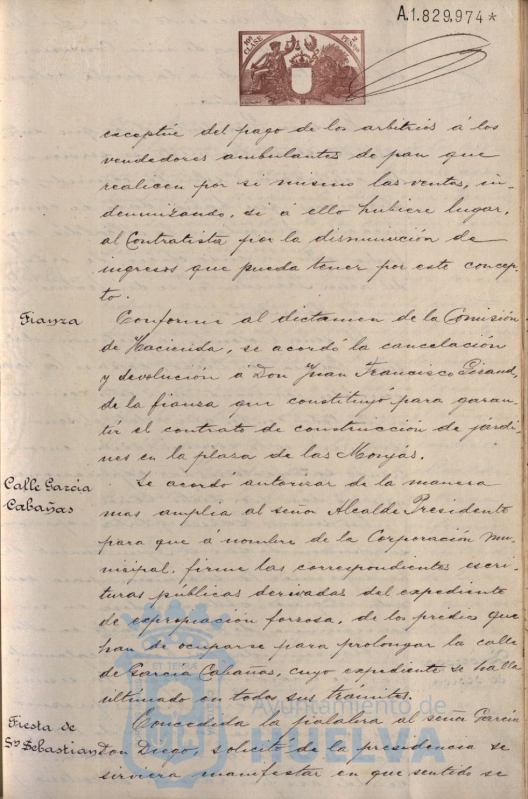 A.1.829,974*
10ª CLASE
PESETAS
exceptúe del pago de los arbitrios á los
vendedores ambulantes de pan que
realicen por si mismo las ventas, in-
demnizando, si á ello hubiere lugar,
al Contratista por la disminución de
ingresos que pueda tener por este concep-
to.
Fianza
Conforme al dictamen de la Comisión
de Hacienda, se acordó la cancelación
y devolución á Don Juan Francisco
de la fianza que constituyó para garan-
tir el contrato de construcción de jardi-
nes en la plaza de las Monjas.
Calle García
Cabañas
Se acordó autorizar de la manera
mas amplia al señor Alcalde Presidente
para que á nombre de la Corporación mu-
nicipal, firme las correspondientes escri-
turas públicas derivadas del expediente
de expropiación forzosa, de los predios que
han de ocuparse para prolongar la calle
de García Cabañas, cuyo expediente se halla
ultimado en todos sus trámites.
Fiesta de
Sn Sebastian
Concedida la palabra al señor García
Don Diego, solicitó de la presidencia se
sirviera manifestar en que sentido se
Ayuntamiento de
HUELVA